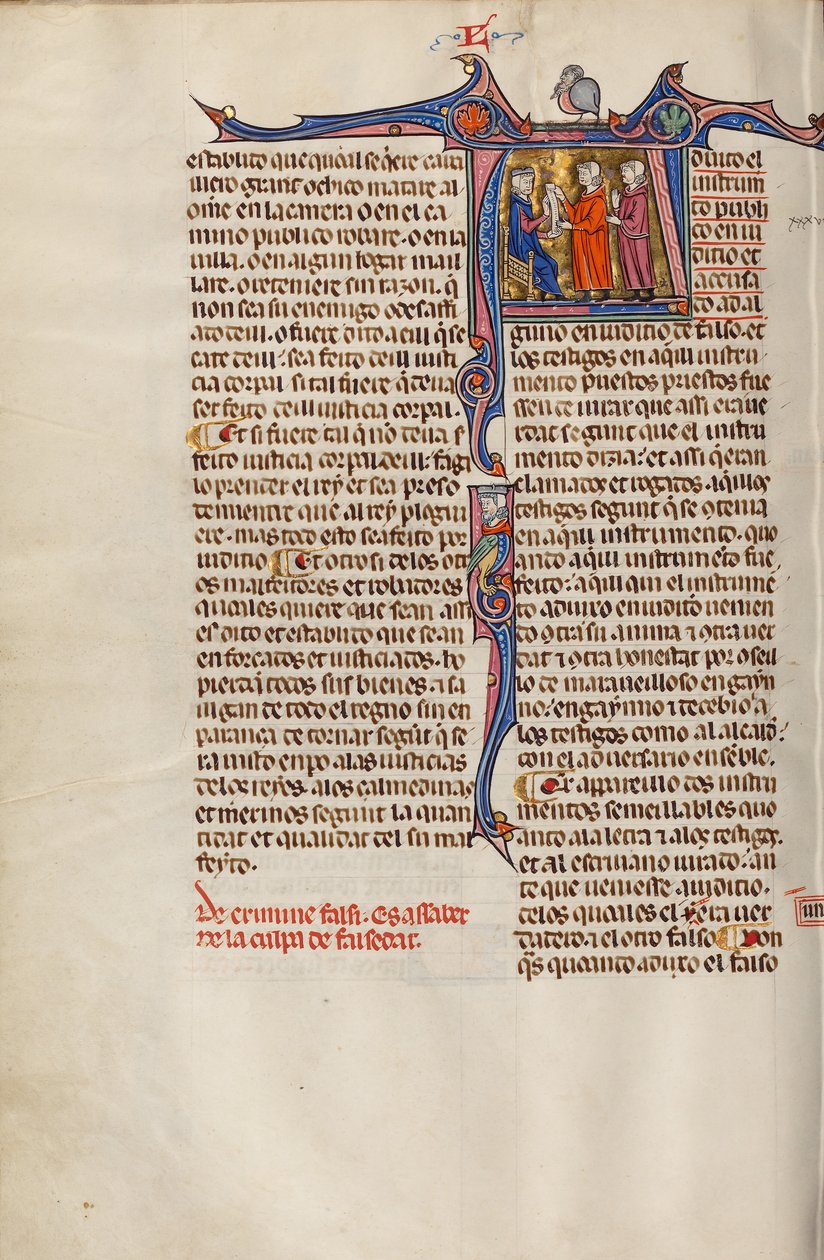 L
establito que qual se q̃ere caua
illero grant o chico matare al
om̃e en la carrera o en el ca
mino publico robare. o en la
uilla. o en algun logar mail
lare. o reteniere sin razon. q̃
non sea su enemigo
o fuere dito a eill q̃ se
cate deill: sea feito deill iusti
cia corpal si tal fuere q̃ deua
ser feito deill iusticia corpal.
Et si fuere tal q̃ no deua s̃
feito iusticia corpal deill: faga
lo prender el rey et sea preso
demientre que al rey plogui
ere. mas todo esto sea feito por
iuditio Et otrosi de los otr
os malfeitores et robadores
quales quiere que sean assi
es dito et establito que sean
enforcados et iusticiados. ho
pierdã todos sus bienes. ⁊ sa
uigan de todo el regno sin es
parança de tornar segũt q̃ se
ra uisto en po a las iusticias
de los reyes. a los çalmedinas
et merinos segunt la quan
titat et qualidat del su mal
feyto.
De crimine falsi. Es assaber
de la culpa de falsedat.
duito el
instrum
to publi
co en iu
ditio et
acusa
do ad al
guno en iuditio de falso. et
los testigos en aq̃ill instru
mento puestos priestos fue
ssen de iurar que assi era uer
dat segunt que el instru
mento dizia: et assi q̃ eran
clamados et rogados aq̃illos
testigos segunt q̃ se ꝯtenia
en aq̃ill instrumento. quo
ando aq̃ill instrumẽto fue
feito: aq̃ill qui el instrumẽ
to aduxo en iuditio uenien
do ꝯtra su anima ⁊ ꝯtra uer
dat ⁊ ꝯtra honestat por ꝯseil
lo de maraueilloso engayn
no: engaynno ⁊ decebio a
los testigos como al alcald̃:
con el aduersario ensẽble.
Et appareillo dos instru
mentos semeillables quo
anto a la letra ⁊ a los testigos.
et al escriuano iurado: an
te que ueniesse a iuditio.
de los quales el era uer
dadero. ⁊ el otro falso Don
q̃s quando aduxo el falso